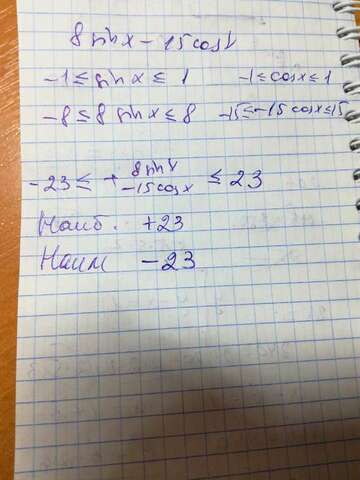 8 sin x - 15 cos x
-1 ≤ sin x ≤ 1 -1 ≤ cos x ≤ 1
-8 ≤ 8 sin x ≤ 8 -15 ≤ -15 cos x ≤ 15
8 sin x
-23 ≤ + -15 cos x ≤ 23
Наиб. +23
Наим -23